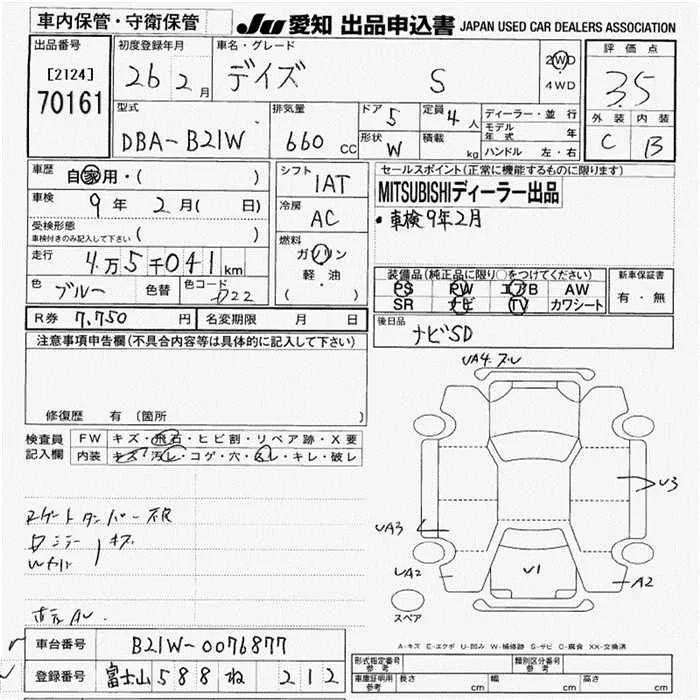 車内保管・守衛保管
JU 愛知 出品申込書 JAPAN USED CAR DEALERS ASSOCIATION
出品番号
[2124]
70161
初度登録年月
26 2月
車名・グレード
デイズ S
2WD
4WD
評価点
3.5
外装 内装
C B
型式
DBA-B21W
排気量
660 cc
ドア 5
形状 W
定員 4人
積載 kg
ディーラー・並行
モデル年式 年
ハンドル 左・右
車歴 自家用・( )
車検 9年 2月( 日)
受検形態
車検付きのみ記入して下さい ( )
走行 4万5千041km
色 ブルー 色替 色コード D22
シフト 1AT
冷房 AC
燃料
ガソリン
軽・油
( )
セールスポイント(正常に機能するものに限ります)
MITSUBISHIディーラー出品
・車検9年2月
装備品(純正品に限り○をつけてください)
PS PW エアB AW
SR ナビ TV カワシート
新車保証書
有・無
後日品
ナビSD
R券 7,750円 名変期限 月 日
注意事項申告欄(不具合内容等は具体的に記入して下さい)
修復歴 有 (箇所 )
検査員記入欄
FW キズ・飛石・ヒビ割・リペア跡・X要
内装 キズ・汚レ・コゲ・穴・スレ・キレ・破レ
Rゲートダンパー不良
UA4.ズレ
U3
UA3
UA2
U1
A2
スペア
A-キズ E-エクボ U-凹み W-補修跡 S-サビ C-腐食 XX-交換済
車台番号 B21W-0076877
登録番号 富士山 588 ね 212
形式指定番号 参考
類別区分番号 参考
車庫証明用 参考 長さ cm 幅 cm 高さ cm